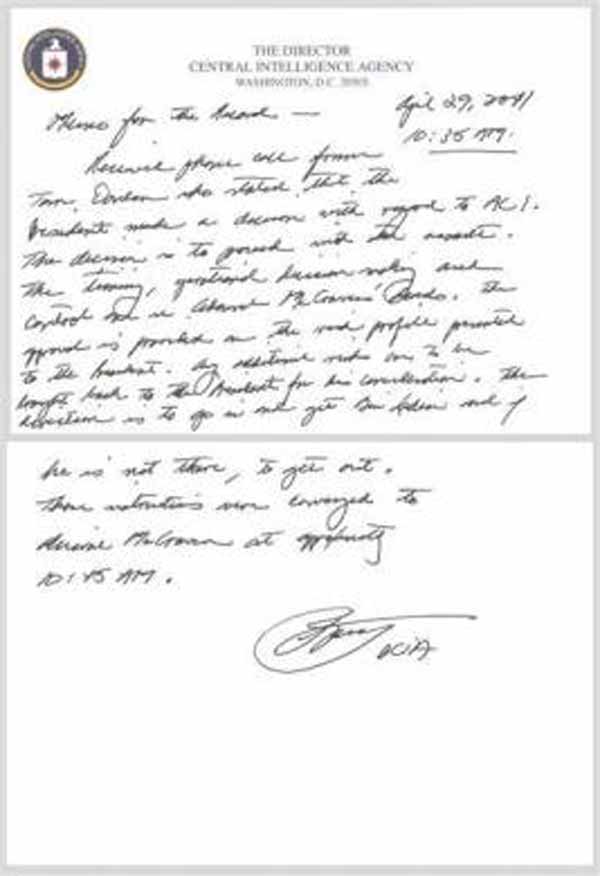 THE DIRECTOR
CENTRAL INTELLIGENCE AGENCY
WASHINGTON, D.C. 20505
Memo for the Record — April 29, 2011
10:35 AM.
Received phone call from
Tom Donilon who stated that the
President made a decision with regard to AC1.
The decision is to proceed with the assault.
The timing, operational decision making and
control are in Admiral McRaven's hands. The
approval is provided on the risk profile presented
to the President. Any additional risks are to be
brought back to the President for his consideration. The
direction is to go in and get Bin Laden and if
he is not there, to get out.
Those instructions were conveyed to
Admiral McRaven at approximately
10:45 AM.
DCIA